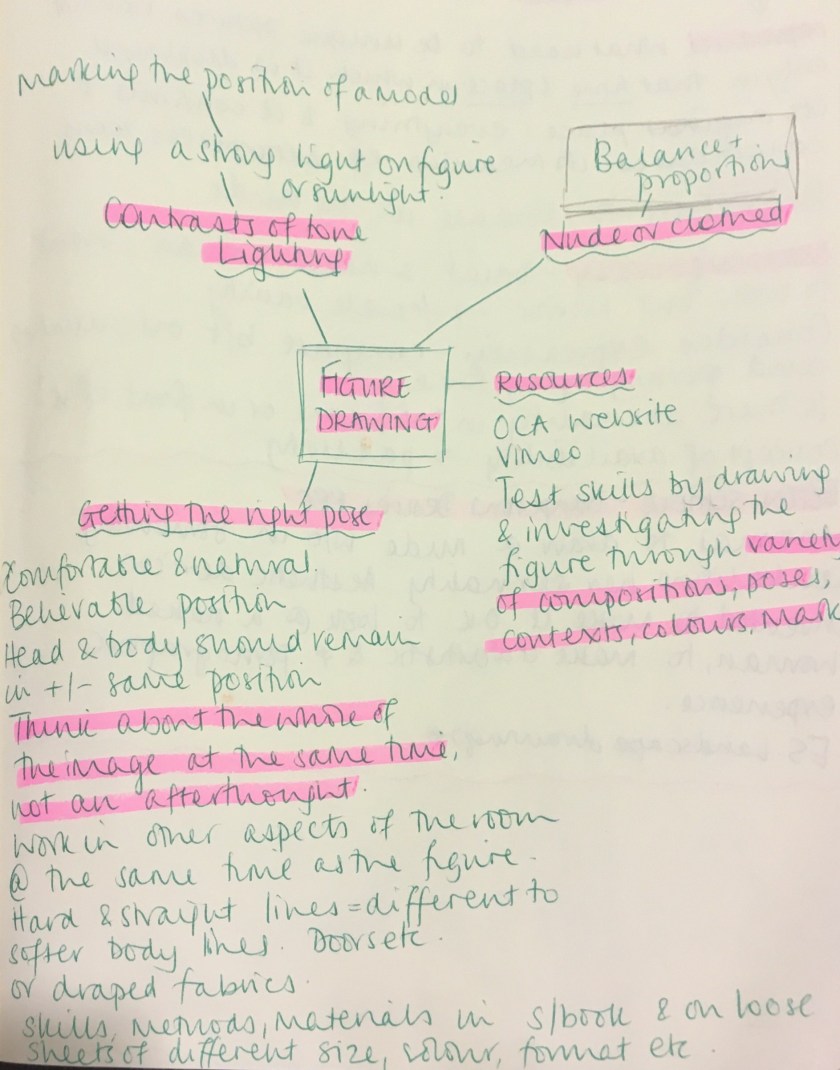 marking the position of a model
using a strong light on figure
or sunlight.
Contrasts of tone
Lighting
Balance +
proportion
Nude or clothed
FIGURE
DRAWING
Resources
OCA website
Vimeo
Test skills by drawing
& investigating the
figure through variety
of composition, poses,
contexts, colours, mark
Getting the right pose
Comfortable & natural.
Believable position
Head & body should remain
in +/- same position
Think about the whole of
the image at the same time,
not an afterthought.
Work in other aspects of the room
@ the same time as the figure.
Hard & straight lines = different to
softer body lines. Doors etc.
or draped fabrics.
skills, methods, materials in s/book & on loose
sheets of different size, colour, format etc.